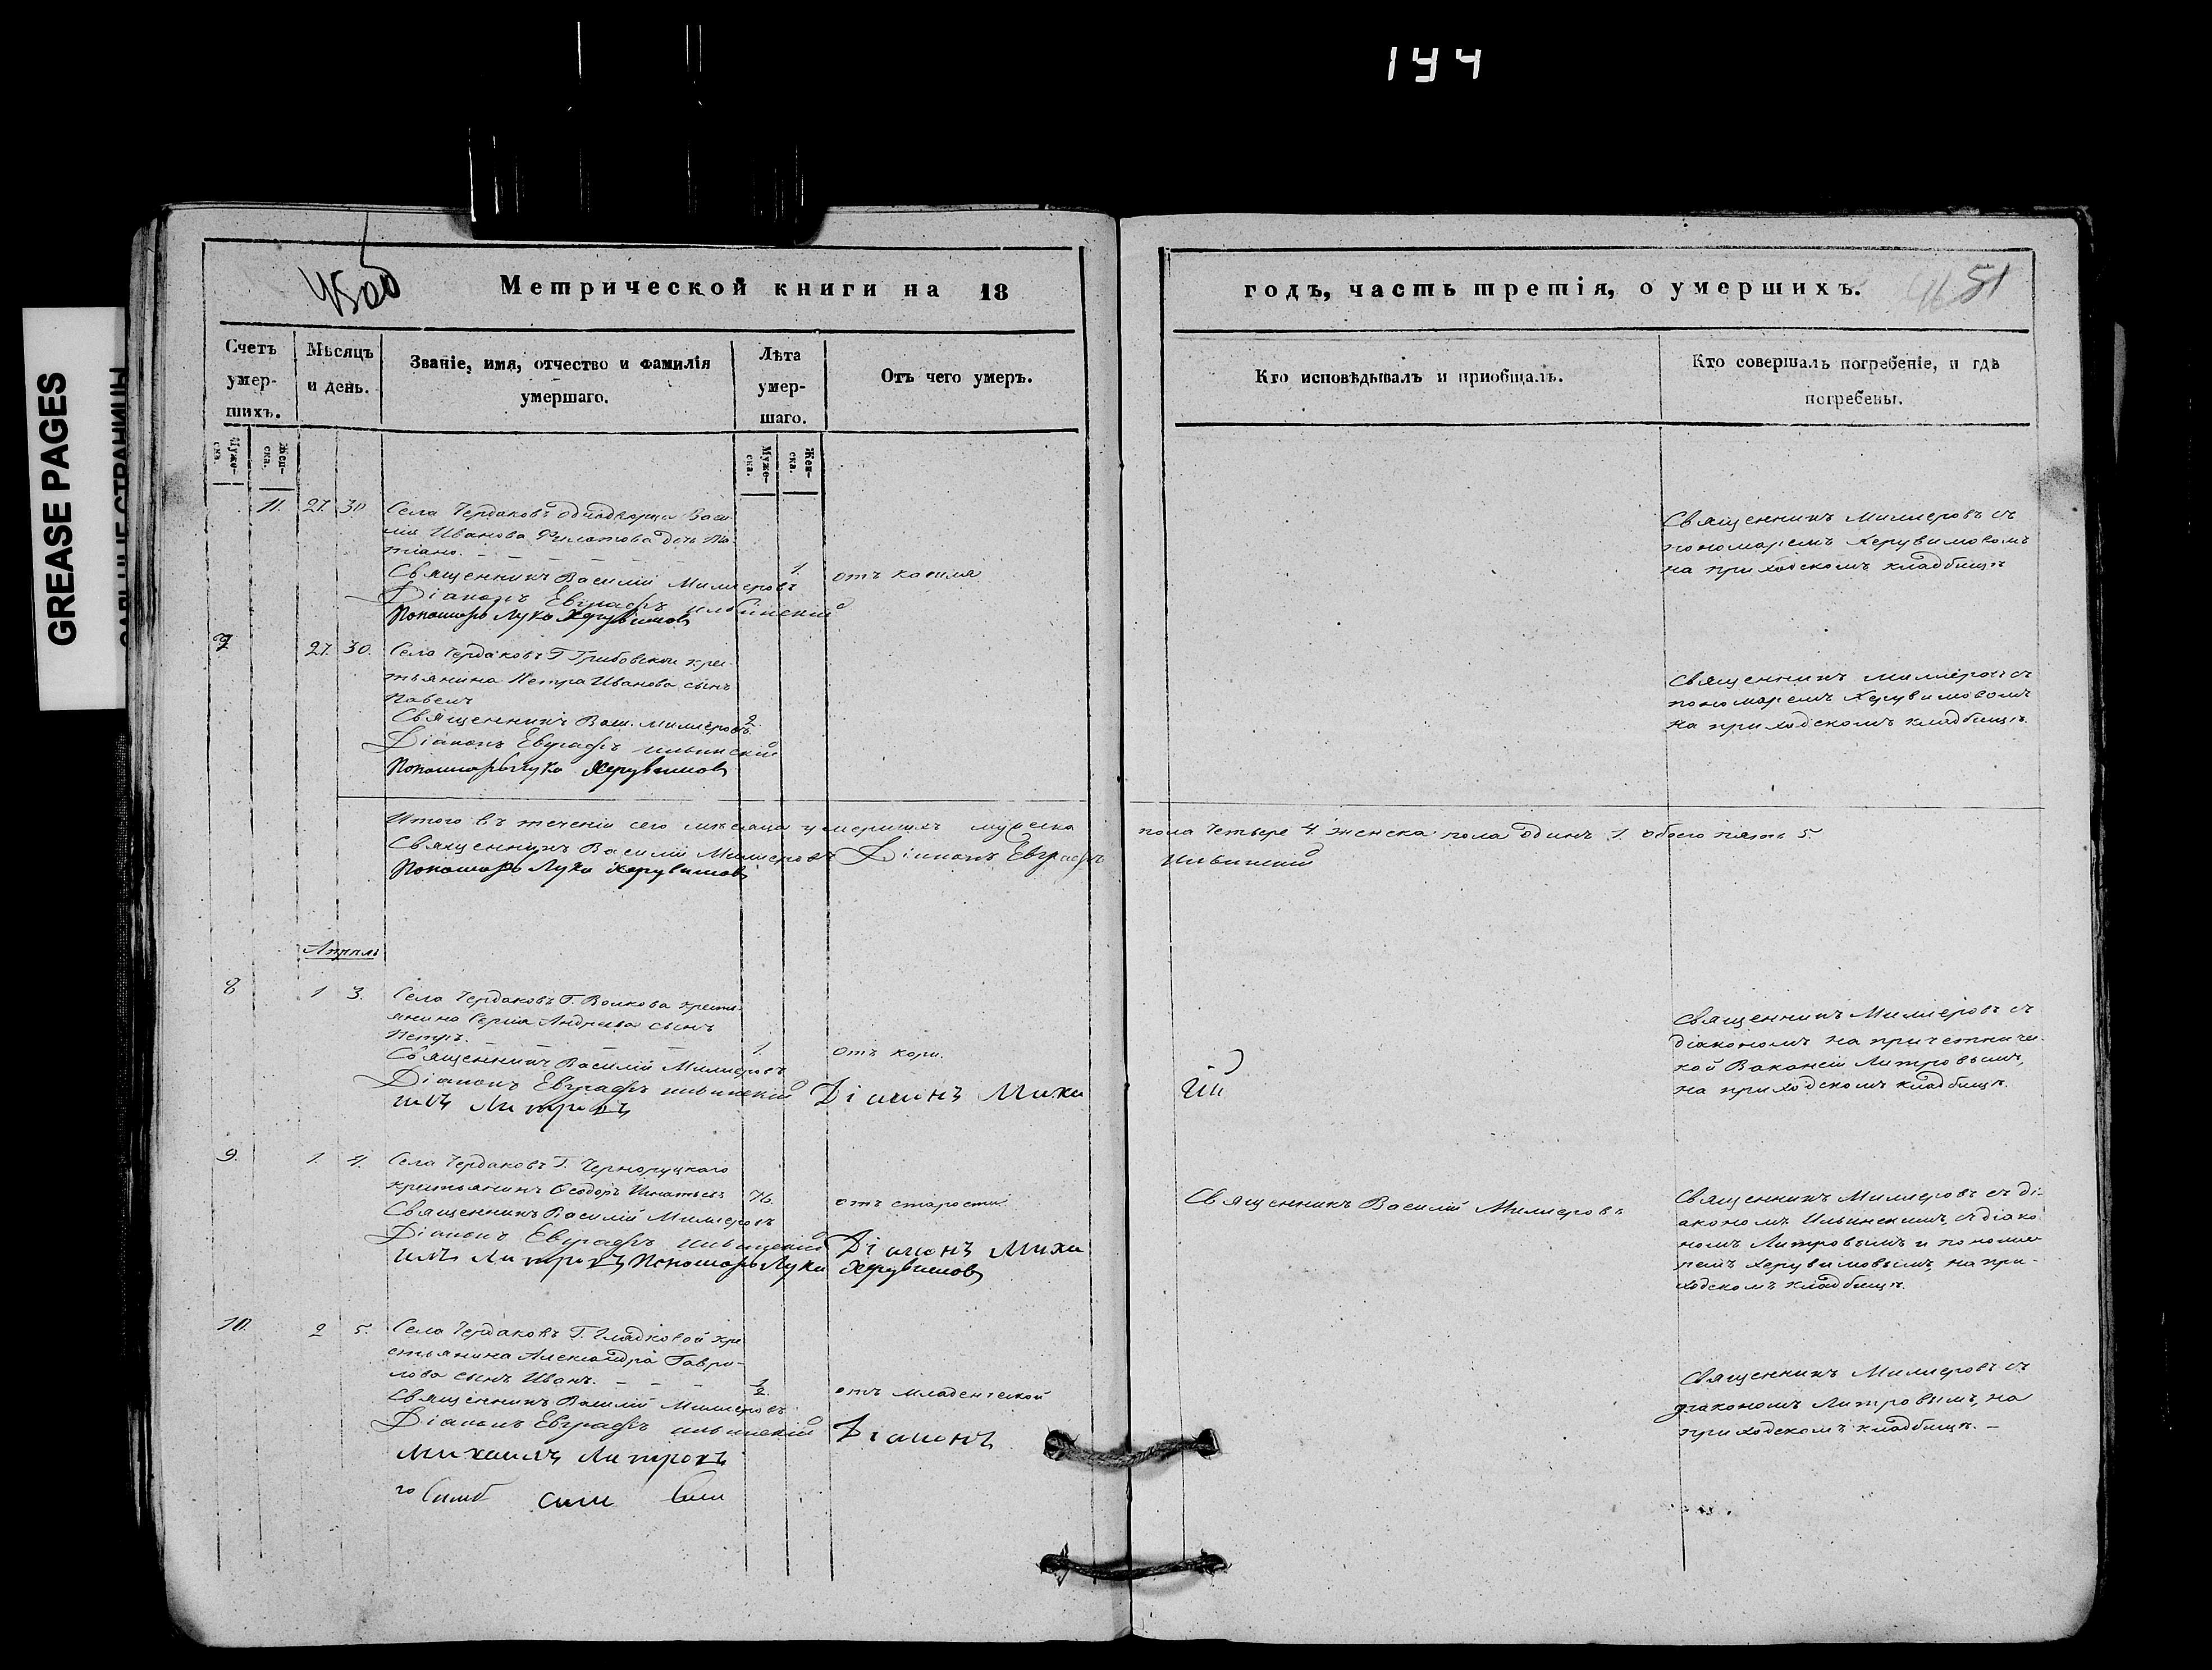 194
GREASE PAGES
Метрической книги на 18
годъ, часть третія, о умершихъ.
51
Счетъ умер-
шихъ.
Мѣсяцъ
и день.
Званіе, имя, отчество и фамилія
умершаго.
Лѣта
умер-
шаго.
Отъ чего умеръ.
Кто исповѣдывалъ и пріобщалъ.
Кто совершалъ погребеніе, и гдѣ
погребены.
Муже-
ска.
Жен-
ска.
Муже-
ска.
Жен-
ска.
11. 27. 30. Села Чердаковъ однодворца Васи-
лія Иванова Филатова дочь
Священникъ Василій Миллеровъ
1. отъ кашля
Діаконъ Евграфъ Ильинскій
Пономарь Лука Херувимовъ
Священникъ Миллеровъ съ
пономаремъ Херувимовымъ
на приходскомъ кладбищѣ
7 27. 30. Села Чердаковъ Г. Грибовской кре-
стьянина Петра Иванова сынъ
Павелъ
Священникъ Вас. Миллеровъ
2.
Діаконъ Евграфъ Ильинскій
Пономарь Лука Херувимовъ
Священникъ Миллеровъ съ
пономаремъ Херувимовомъ
на приходскомъ кладбищѣ.
Итого въ теченіи сего мѣсяца умершихъ мужеска пола четыре 4. женска пола одинъ 1. обоего пять 5.
Священникъ Василій Миллеровъ Діаконъ Евграфъ Ильинскій
Пономарь Лука Херувимовъ
Апрѣль
8 1 3. Села Чердаковъ Г. Волкова кресть-
янина Сергія Андреева сынъ
Петръ.
Священникъ Василій Миллеровъ
1. отъ кори.
Діаконъ Евграфъ Ильинскій Діаконъ Миха
илъ Литровъ
Священникъ Миллеровъ съ
діакономъ на причетниче-
кой Вакансіи Литровымъ,
на приходскомъ кладбищѣ.
9. 1. 4. Села Чердаковъ Г. Черноруцкаго
крестьянинъ Ѳеодоръ Игнатьевъ
76. отъ старости
Священникъ Василій Миллеровъ
Священникъ Василій Миллеровъ
Діаконъ Евграфъ Ильинскій Діаконъ Миха
илъ Литровъ Пономарь Лука Херувимовъ
Священникъ Миллеровъ съ ді-
акономъ Ильинскимъ, съ діако
номъ Литровымъ и понома-
ремъ Херувимовымъ, на при-
ходскомъ кладбищѣ.
10. 2 5. Села Чердаковъ Г. Гладковой кре
стьянина Александра Гаври-
лова сынъ Иванъ.
1/2. отъ младенческой
Священникъ Василій Миллеровъ
Діаконъ Евграфъ Ильинскій Діаконъ
Михаилъ Литровъ
Священникъ Миллеровъ съ
діакономъ Литровымъ, на
приходскомъ кладбищѣ. –